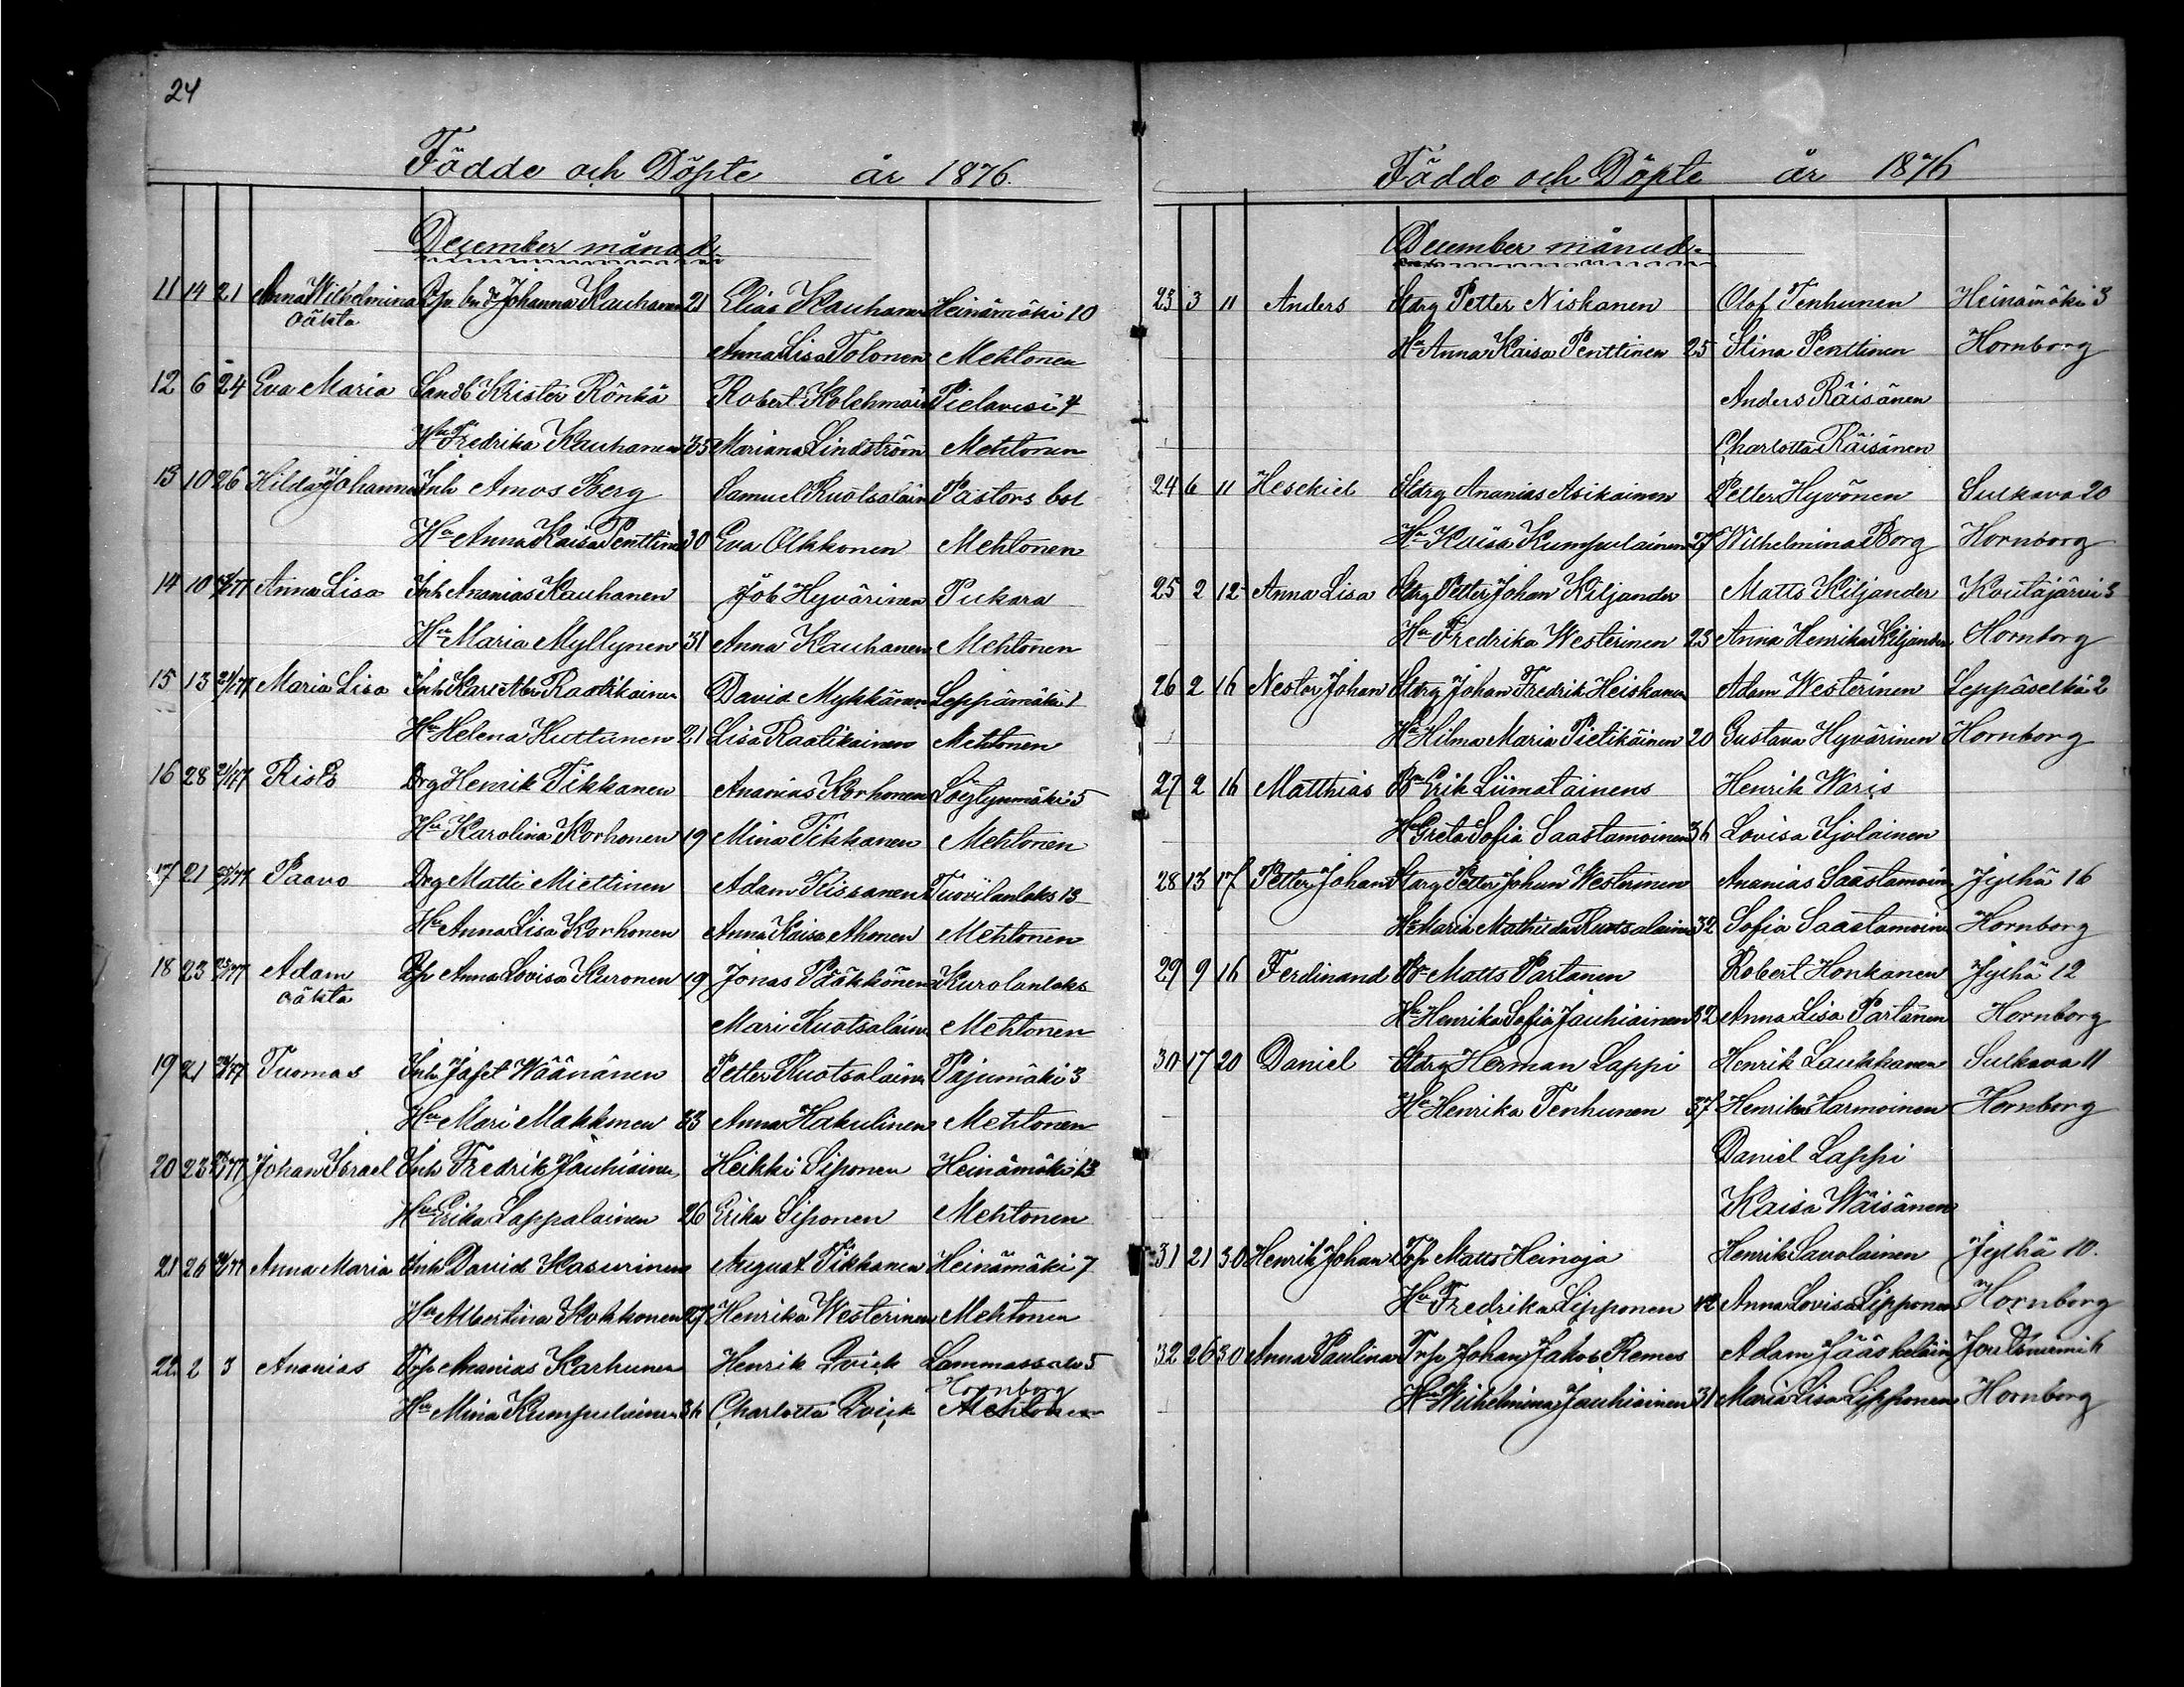 24
Födde och Döpte år 1876.
December månad.
11 14 21 Anna Wilhelmina Johanna Kauhanen 21 Elias Kauhanen Heinämäki 10
oäkta
Anna Lisa Tolonen Mehtonen
12 6 24 Eva Maria Landb Krister Rönkä Robert Kolehmain Pielavesi 4
Hu Fredrika Kauhanen 35 Mariana Lindström Mehtonen
13 10 26 Hilda Johanna Inh Amos Berg Samuel Ruotsalain Pastors bol
Hu Anna Kaisa Penttinen 30 Eva Olkkonen Mehtonen
14 10 Anna Lisa Inh Ananias Kauhanen Job Hyvärinen Pukara
Hu Maria Myllynen 31 Anna Kauhanen Mehtonen
15 13 Maria Lisa Inh Karl Abr Raatikainen David Mykkänen Leppämäki 1
Hu Helena Huttunen 21 Lisa Raatikainen Mehtonen
16 28 Risto Drg Henrik Tikkanen Ananias Korhonen Löytynmäki 5
Hu Karolina Korhonen 19 Mina Tikkanen Mehtonen
17 21 Paavo Drg Matti Miettinen Adam Tissanen Tuovilanlaks 13
Hu Anna Lisa Korhonen Anna Kaisa Ahonen Mehtonen
18 23 Adam Anna Lovisa Kuronen 19 Jonas Pääkkönen Kurolanlaks
oäkta
Mari Ruotsalain Mehtonen
19 21 Tuomas Inh Jafet Wäänänen Petter Ruotsalain Pajumäki 3
Hu Mari Makkonen 33 Anna Hakulinen Mehtonen
20 23 Johan Israel Inh Fredrik Jauhiainen Heikki Siponen Heinämäki 13
Hu Erika Lappalainen 26 Erika Siponen Mehtonen
21 26 Anna Maria Inh David Kasurinen August Tikkanen Heinämäki 7
Hu Albertina Kokkonen 27 Henrika Westerinen Mehtonen
22 2 3 Ananias Trp Ananias Karhunen Henrik Qvick Lammassalo 5
Hornborg
Hu Mina Kumpulainen 36 Charlotta Qvick Mehtonen
Födde och Döpte år 1876
December månad.
23 3 11 Anders Stdrg Petter Niskanen Olof Tenhunen Heinämäki 3
Hu Anna Kaisa Penttinen 25 Stina Penttinen Hornborg
Anders Räisänen
Charlotta Räisänen
24 6 11 Hesekiel Stdrg Ananias Asikainen Petter Hyvönen Sulkava 20
Hu Kaisa Kumpulainen 27 Wilhelmina Borg Hornborg
25 2 12 Anna Lisa Stdrg Petter Johan Kiljander Matts Kiljander Koutajärvi 3
Hu Fredrika Westerinen 23 Anna Henrika Kiljander Hornborg
26 2 16 Nestor Johan Stdrg Johan Fredrik Heiskanen Adam Westerinen Leppäselkä 2
Hu Hilma Maria Pietikäinen 20 Gustava Hyvärinen Hornborg
27 2 16 Matthias Bn Erik Liimatainens Henrik Waris
Hu Greta Sofia Saastamoinen 36 Lovisa Tjolainen
28 13 17 Petter Johan Stdrg Petter Johan Westerinen Ananias Saastamoin Jylhä 16
Hu Maria Mathilda Ruotsalainen 32 Sofia Saastamoin Hornborg
29 9 16 Ferdinand Bn Matts Partanen Robert Honkanen Jylhä 12
Hu Henrika Sofia Jauhiainen 32 Anna Lisa Partanen Hornborg
30 17 20 Daniel Stdrg Herman Lappi Henrik Laukkanen Sulkava 11
Hu Henrika Tenhunen 37 Henrika Harmoinen Hornborg
Daniel Lappi
Kaisa Wäisänen
31 21 30 Henrik Johan Trp Matts Heinoja Henrik Savolainen Jylhä 10.
Hu Fredrika Lipponen 42 Anna Lovisa Lipponen Hornborg
32 26 30 Anna Paulina Trp Johan Jakob Remes Adam Jääskeläin Joutsniemi 6
Hu Wilhelmina Jauhiainen 31 Maria Lisa Lipponen Hornborg